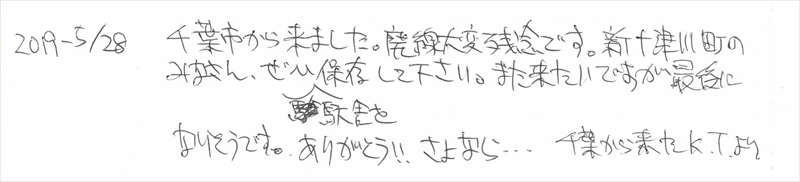 2019-5/28 千葉市から来ました。廃線大変残念です。新十津川町の
みなさん、ぜひ保存して下さい。また来たいですが最後に
駅舎を
なりそうです。ありがとう!! さよなら… 千葉から来たK.T.より